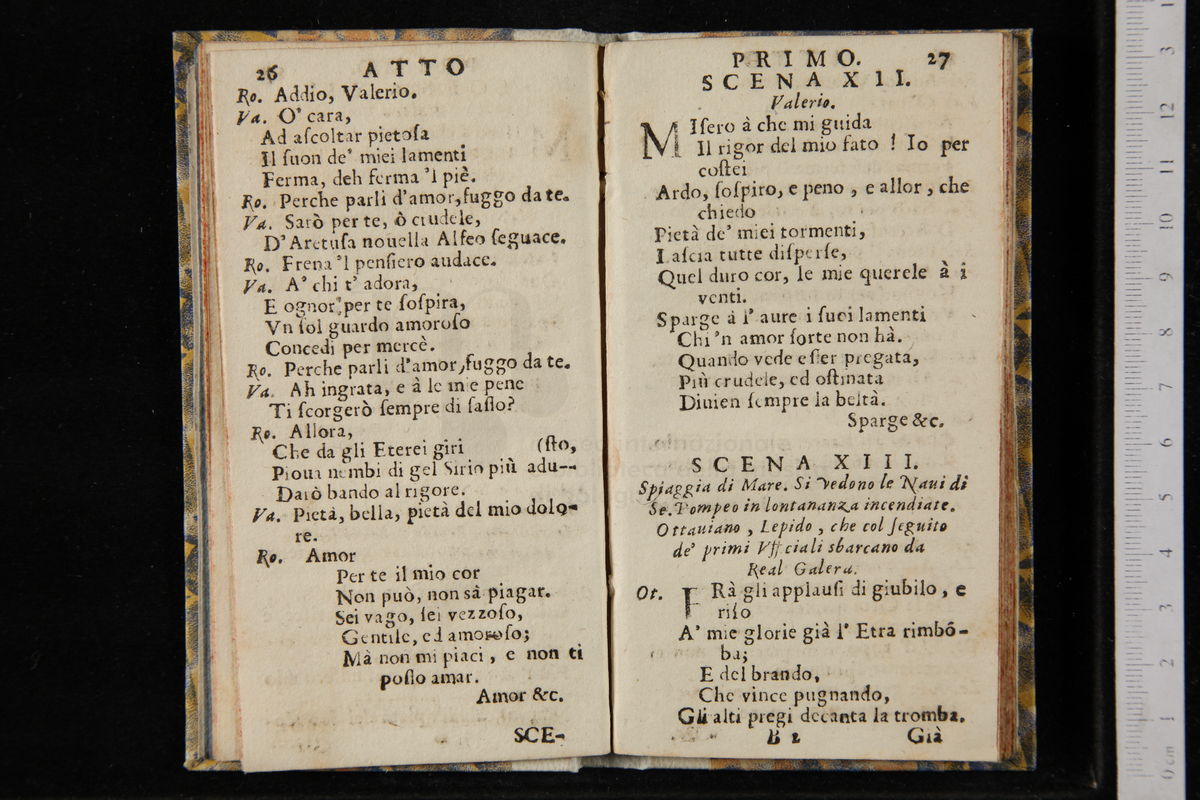 26 ATTO
Ro. Addio, Valerio.
Va. O' cara,
Ad aſcoltar pietoſa
Il ſuon de' miei lamenti
Ferma, deh ferma 'l piè.
Ro. Perche parli d'amor, fuggo da te.
Va. Sarò per te, ò crudele,
D'Aretuſa nouella Alfeo ſeguace.
Ro. Frena 'l penſiero audace.
Va. A' chi t' adora,
E ognor per te ſoſpira,
Vn ſol guardo amoroſo
Concedi per mercè.
Ro. Perche parli d'amor, fuggo da te.
Va. Ah ingrata, e à le mie pene
Ti ſcorgerò ſempre di ſaſſo?
Ro. Allora,
Che da gli Eterei giri (ſto,
Pioua nembi di gel Sirio più adu-
Darò bando al rigore.
Va. Pietà, bella, pietà del mio dolo-
re.
Ro. Amor
Per te il mio cor
Non può, non sà piagar.
Sei vago, ſei vezzoſo,
Gentile, ed amoroſo;
Mà non mi piaci, e non ti
poſſo amar.
Amor &c.
SCE-
PRIMO. 27
SCENA XII.
Valerio.
MIſero à che mi guida
Il rigor del mio fato ! Io per
coſtei
Ardo, ſoſpiro, e peno, e allor, che
chiedo
Pietà de' miei tormenti,
Laſcia tutte diſperſe,
Quel duro cor, le mie querele à i
venti.
Sparge à l' aure i ſuoi lamenti
Chi 'n amor ſorte non hà.
Quando vede eſſer pregata,
Più crudele, ed oſtinata
Diuien ſempre la beltà.
Sparge &c.
SCENA XIII.
Spiaggia di Mare. Si vedono le Naui di
Se. Pompeo in lontananza incendiate.
Ottauiano, Lepido, che col ſeguito
de' primi Vfficiali sbarcano da
Real Galera.
Ot. FRà gli applauſi di giubilo, e
riſo
A' mie glorie già l' Etra rimbô-
ba;
E del brando,
Che vince pugnando,
Gli alti pregi decanta la tromba.
B 2 Già